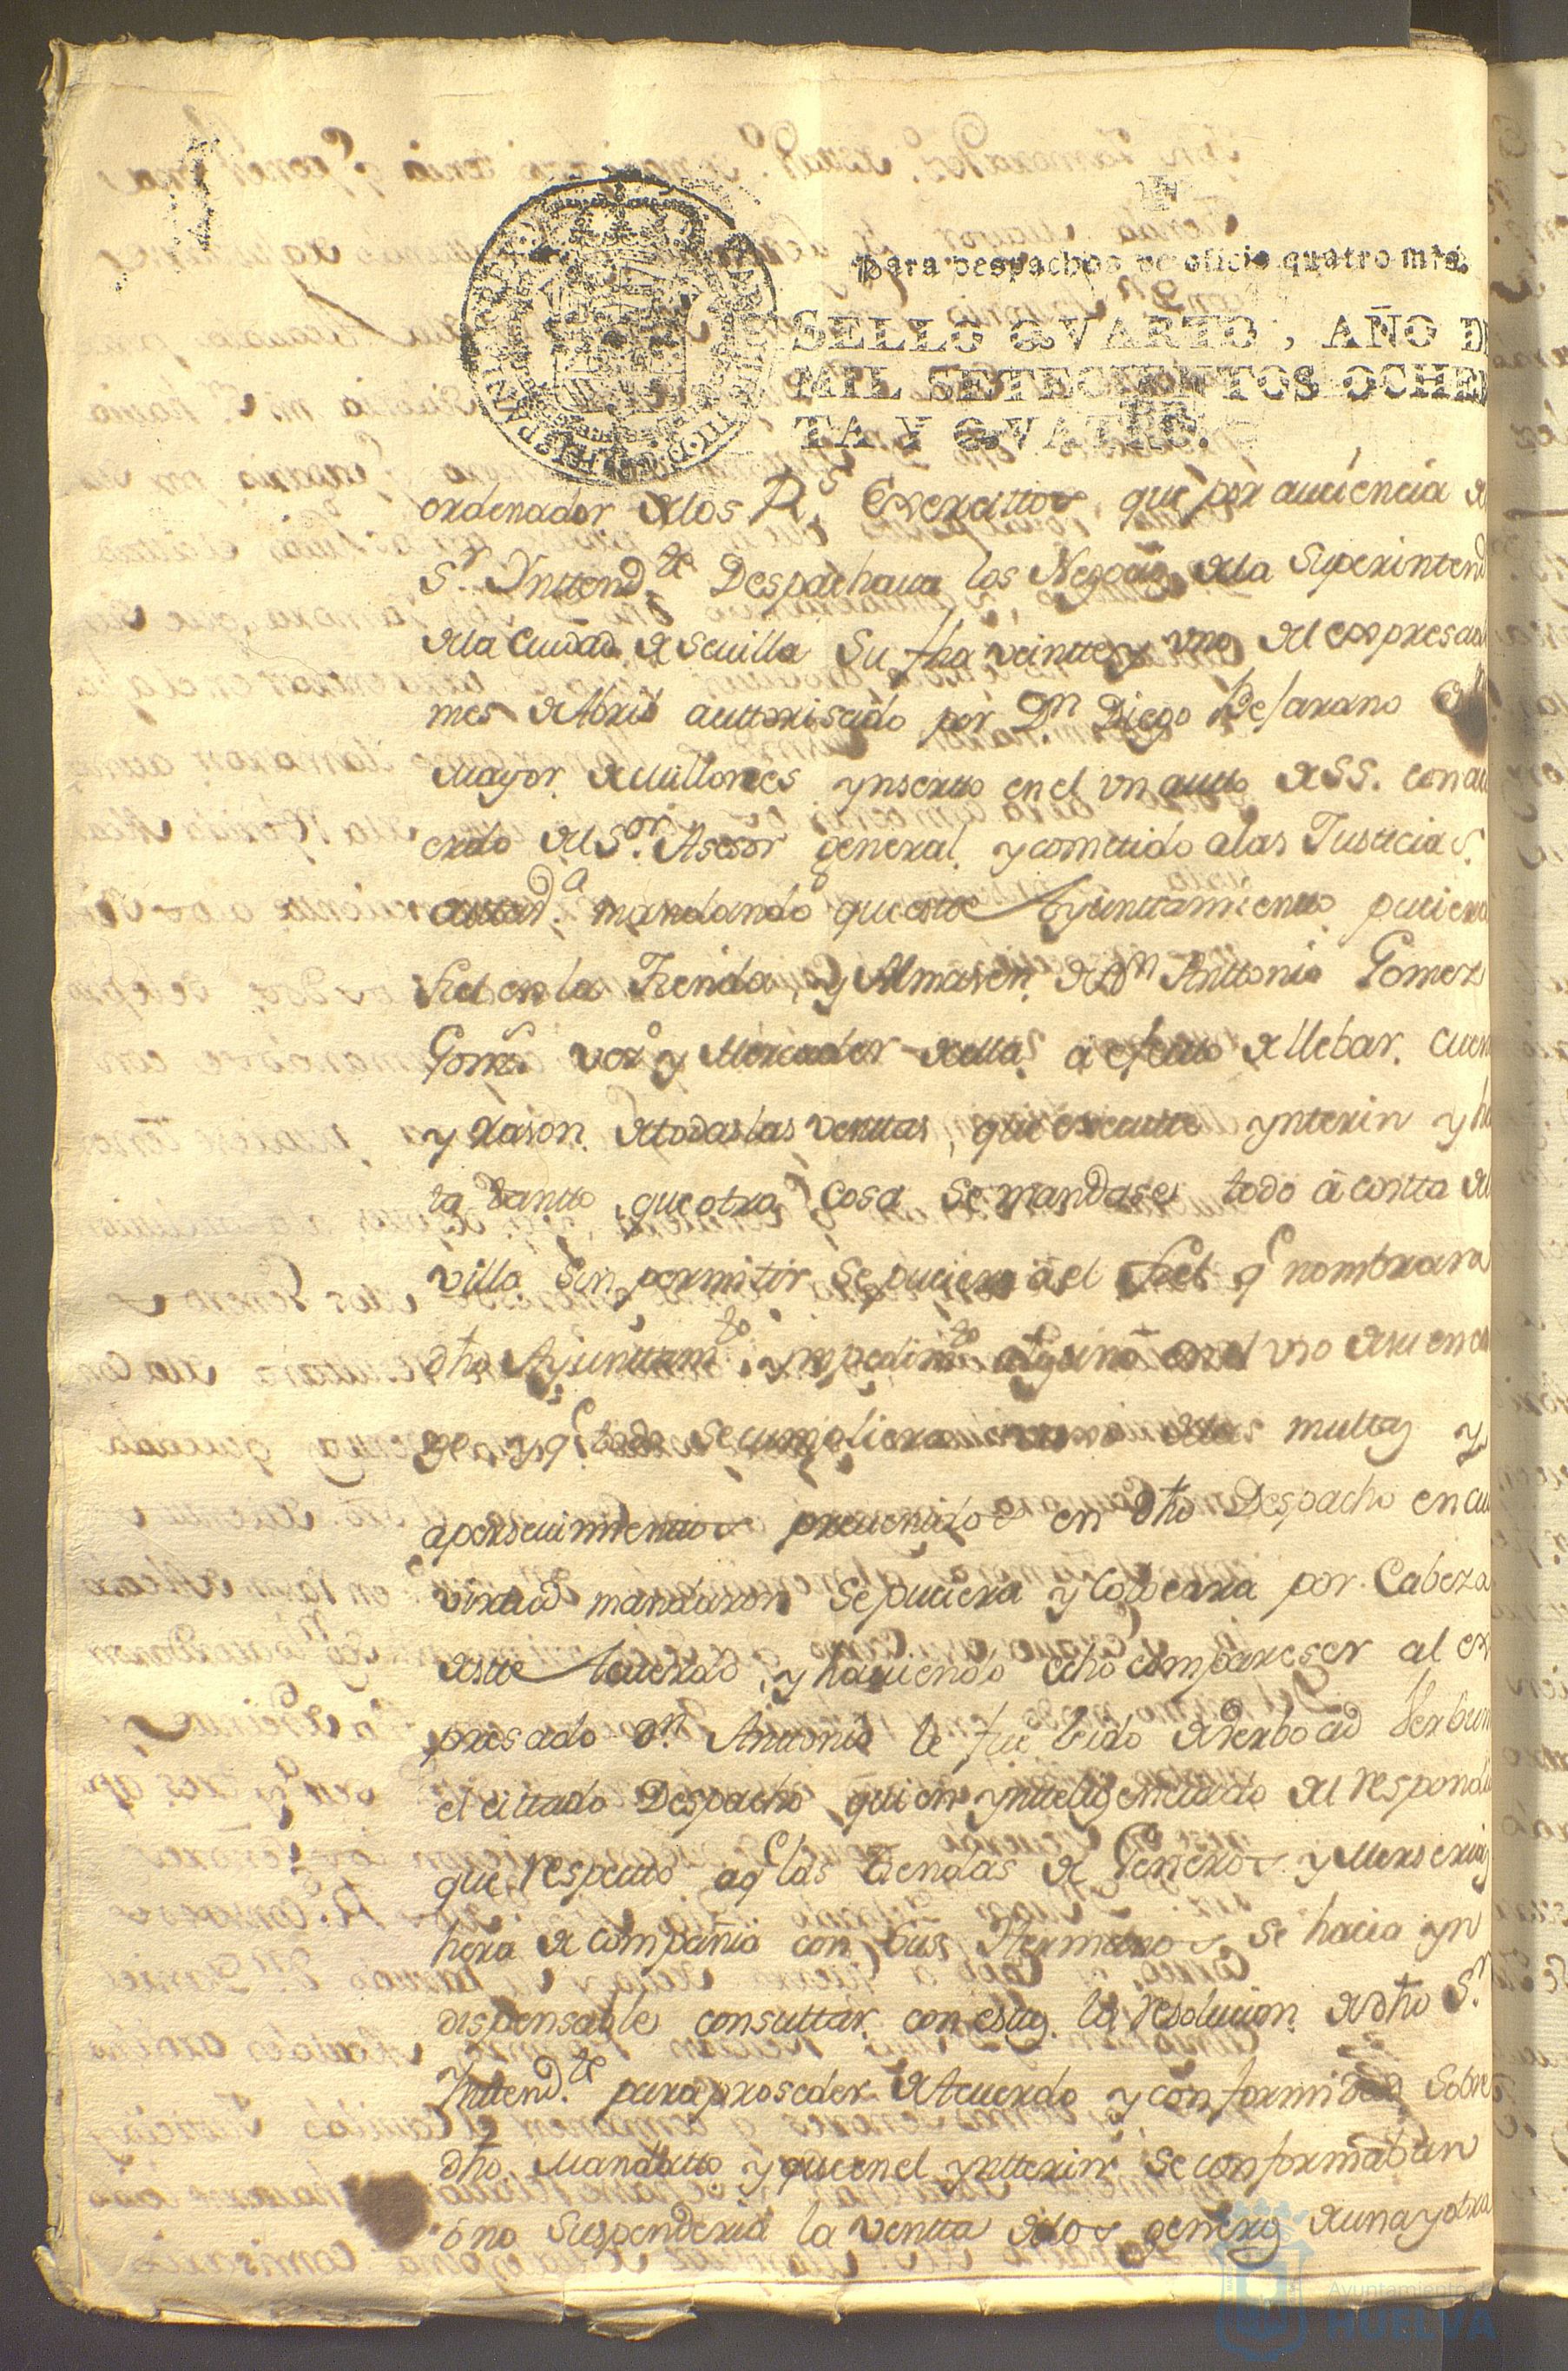 Para despachos de oficio quatro mrs.
SELLO QVARTO, AÑO DE
MIL SETECIENTOS OCHEN
TA Y QVATRO.
ordenador delos Rs. Exercittos, que por auciencia de
Sr. Ynttendte. Despachaua los Negocios dela Superintend
dela Ciudad de Seuilla Su fha veintte y uno del expresado
mes de Abril auttorisado por Dn Diego Bejarano
mayor de millones ynsertto en el un autto de SS. con acu
erdo del Sor. Asesor general. y comettido alas Justicias.
mandando que estte Ayunttamientto puciera
fiel en la Tienda, y Almasen. de Dn Anttonio Gomez
Gomez vezo. y Mercader de ella a efectto de llebar. cuen
y rason. de todas las venttas, que executte ynterin y ha
ta tantto, que otra cosa se mandase, todo â costa del
villa Sin permitir Se puciera âel Fiel q nombrara
dho Ayunttamto. ympedimto. alguno en el uso de su enca
go y q. todo se cumpliera multas y
aperseuimienttos preuenidos en dho Despacho en cu
virtud mandaron Se puciera y colocara por Cabeza
deste Acuerdo, y hauiendo echo compareser al ex
presado Dn. Anttonio le fue leido de Verbo ad Verbum
el cittado Despacho quien ynttelig enciado del respondio
que respectto aq las Tiendas de Generos. y Merserias
hera de compañia con sus Hermanos Se hacia yn
dispensable consulttar. con estos. la resolucion. de dho Sr.
Ynttendte. para proseder de Acuerdo y conformidad Sobre
dho. Mandatto y que en el yntterin Se conformaban
ó no Suspenderia la ventta delos generos de una y otra
Ayuntamiento de
HUELVA